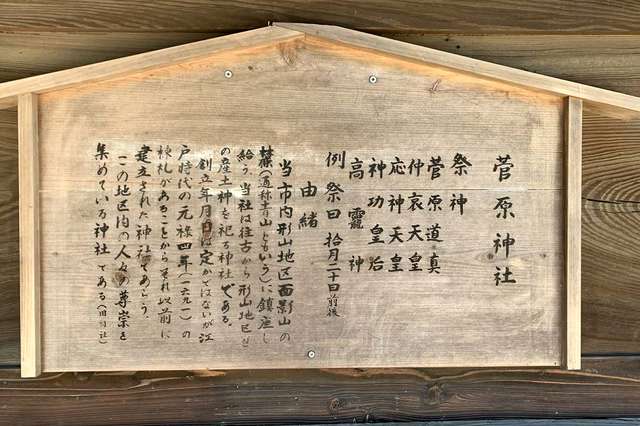 菅原神社
祭神
菅原道真
仲哀天皇
応神天皇
神功皇后
高龗神
例祭日 拾月二十日前後
由緒
当市内形山地区面影山の
林藻(道称青山ともいう)に鎮座し
給う。当社は往古から形山地区
の産土神を祀る神社である。
創立年月日は定かではないが江
戸時代の元禄四年(一六九一)の
棟札があることからそれ以前に
建立された神社であろう。
この地区内の人々の尊崇を
集めている神社である(旧村社)